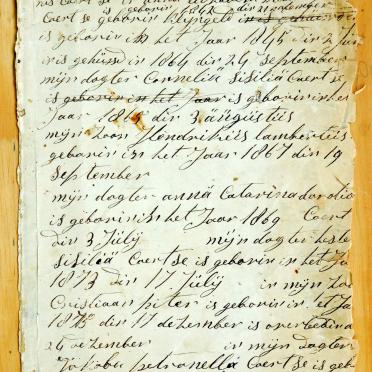 geborin 1842 dir 21 november
Coertse geborin Kleyngeld
is geborin in het Jaar 1845 dir 2 Juni
in is gehüsd in 1864 dir 24 September
mijn dogter Cornelia Sisiliä Coertse
is geborin in het Jaar is geborin in het
Jaar 1865 dir 3 aügüstüs
mijn Zoon Hendriküs lambertüs
geborin in het Jaar 1867 din 19
September
mijn dogter annä Catarina dorotia
is geborin in het Jaar 1869 Coert
dir 3 Jülÿ mijn dogter heste
Sisiliä Coertse is geborin in het Ja
1873 dir 17 Jülÿ in mijn Zoo
Cristiaan piter is geborin in et Ja
1875 der 17 deZember is overledin
26 deZember in mijn dogter
Jakoba petronella Coertse is geb